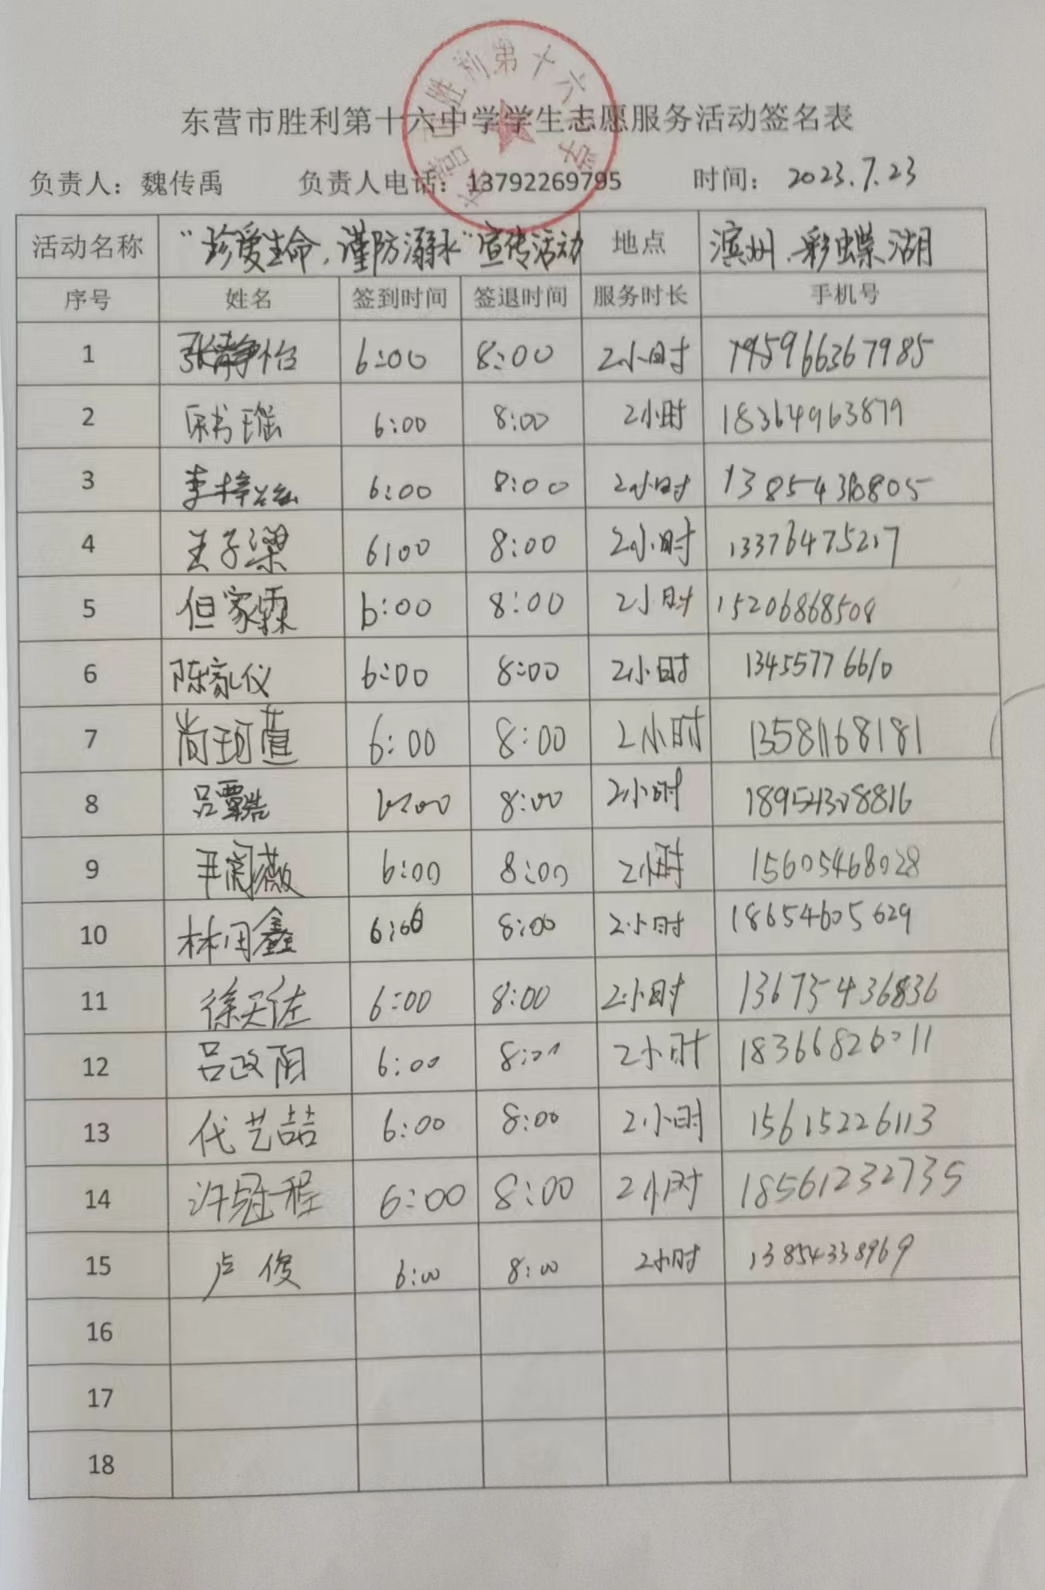 东营市胜利第十六中学学生志愿服务活动签名表
负责人：魏传禹 负责人电话：13792269795 时间：2023.7.23
活动名称 “珍爱生命，谨防溺水”宣传活动 地点 滨州.彩蝶湖
序号 姓名 签到时间 签退时间 服务时长 手机号
1 张静怡 6:00 8:00 2小时
2 宋书瑶 6:00 8:00 2小时 18364963879
3 李梓 6:00 8:00 2小时
4 王子梁 6:00 8:00 2小时 13376475217
5 但家霖 6:00 8:00 2小时 15206868508
6 陈家仪 6:00 8:00 2小时 13455776610
7 尚珂萱 6:00 8:00 2小时 13581168181
8 吕覃浩 6:00 8:00 2小时 18954308816
9 薇 6:00 8:00 2小时 15605468028
10 林用鑫 6:00 8:00 2小时 18654605629
11 徐天佐 6:00 8:00 2小时
12 吕政阳 6:00 8:00 2小时 18366826011
13 代艺喆 6:00 8:00 2小时 15615226113
14 许冠程 6:00 8:00 2小时 18561232735
15 卢俊 6:00 8:00 2小时 13854338969
16
17
18